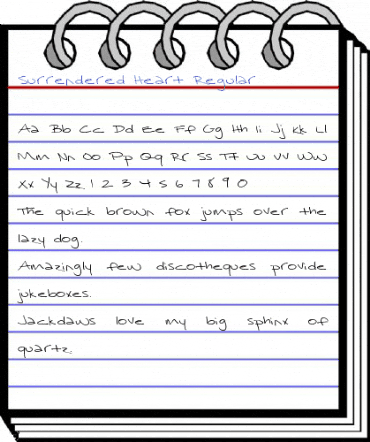 Surrendered Heart Regular
Aa Bb Cc Dd Ee Ff Gg Hh Ii Jj Kk Ll
Mm Nn Oo Pp Qq Rr Ss Tt Uu Vv Ww
Xx Yy Zz 1 2 3 4 5 6 7 8 9 0
The quick brown fox jumps over the
lazy dog.
Amazingly few discotheques provide
jukeboxes.
Jackdaws love my big sphinx of
quartz.